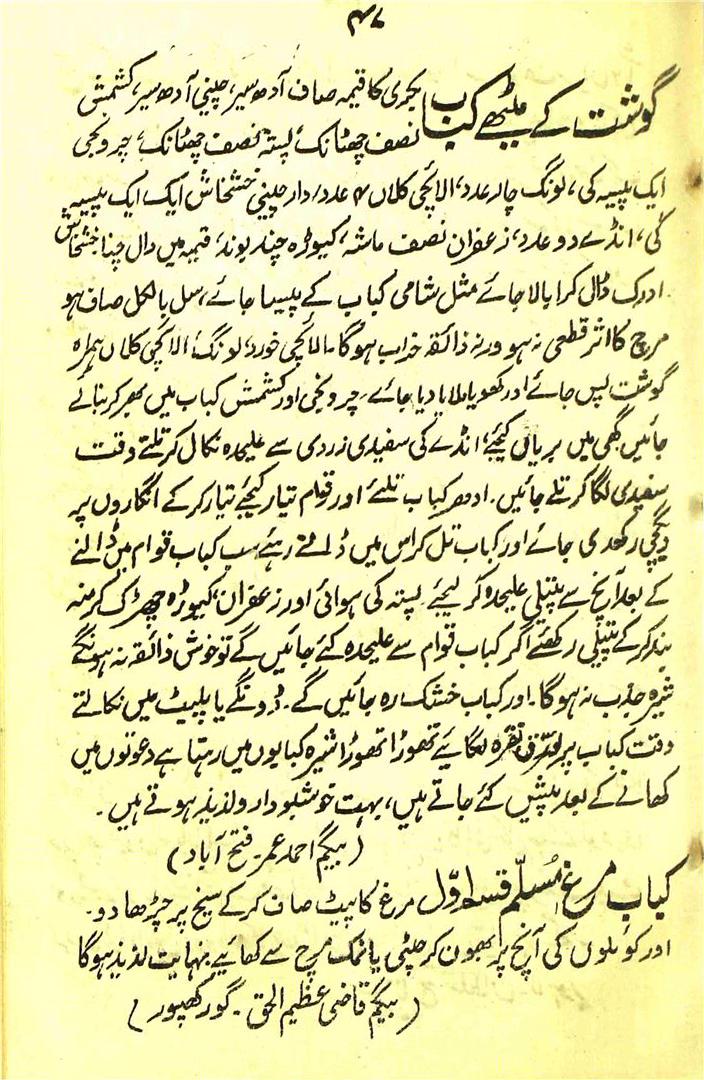 ۴۷
گوشت کے میٹھے کباب بکری کا قیمہ صاف آدھ سیر، چینی آدھ سیر، کشمش
نصف چھٹانک، پستہ نصف چھٹانک، چرونجی
ایک پیسہ کی، لونگ چار عدد، الائچی کلاں ۴ عدد، دار چینی خشخاش ایک ایک پیسہ
کی، انڈے دو عدد، زعفران نصف ماشہ، کیوڑہ چند بوند، قیمہ میں دال چنا خشخاش
ادرک ڈال کر ابالا جائے مثل شامی کباب کے پیسا جائے، سل بالکل صاف ہو
مرچ کا اثر قطعی نہ ہو ورنہ ذائقہ خراب ہوگا۔ الائچی خورد، لونگ، الائچی کلاں ہمراہ
گوشت پس جائے اور کھویا ملا یا دیا جائے، چرونجی اور کشمش کباب میں بھر کر بنائے
جائیں گھی میں بریاں کیجئے، انڈے کی سفیدی زردی سے علیحدہ نکال کر تلتے وقت
سفیدی لگا کر تلے جائیں۔ ادھر کباب تلئے اور قوام تیار کیجئے تیار کر کے انگاروں پر
دیگچی رکھدی جائے اور کباب تل کر اس میں ڈالتے رہئے سب کباب قوام میں ڈالنے
کے بعد آنچ سے پتیلی علیحدہ کر لیجئے۔ پستہ کی ہوائی اور زعفران، کیوڑہ چھڑک کر منہ
بند کر کے پتیلی رکھئے اگر کباب قوام سے علیحدہ کئے جائیں گے تو خوش ذائقہ نہ ہونگے
شیرہ جذب نہ ہوگا۔ اور کباب خشک رہ جائیں گے۔ ڈونگے یا پلیٹ میں نکالتے
وقت کباب پر ورق نقرہ لگائیے تھوڑا تھوڑا شیرہ کبابوں میں رہتا ہے دعوتوں میں
کھانے کے بعد پیش کئے جاتے ہیں، بہت خوشبودار و لذیذ ہوتے ہیں۔
(بیگم احمد عمر۔ فتح آباد)
کباب مرغ مُسلّم قسم اوّل مرغ کا پیٹ صاف کر کے سیخ پر چڑھا دو۔
اور کوئلوں کی آنچ پر بھون کر چٹنی یا نمک مرچ سے کھائیے نہایت لذیذ ہوگا
(بیگم قاضی عظیم الحق۔ گورکھپور)